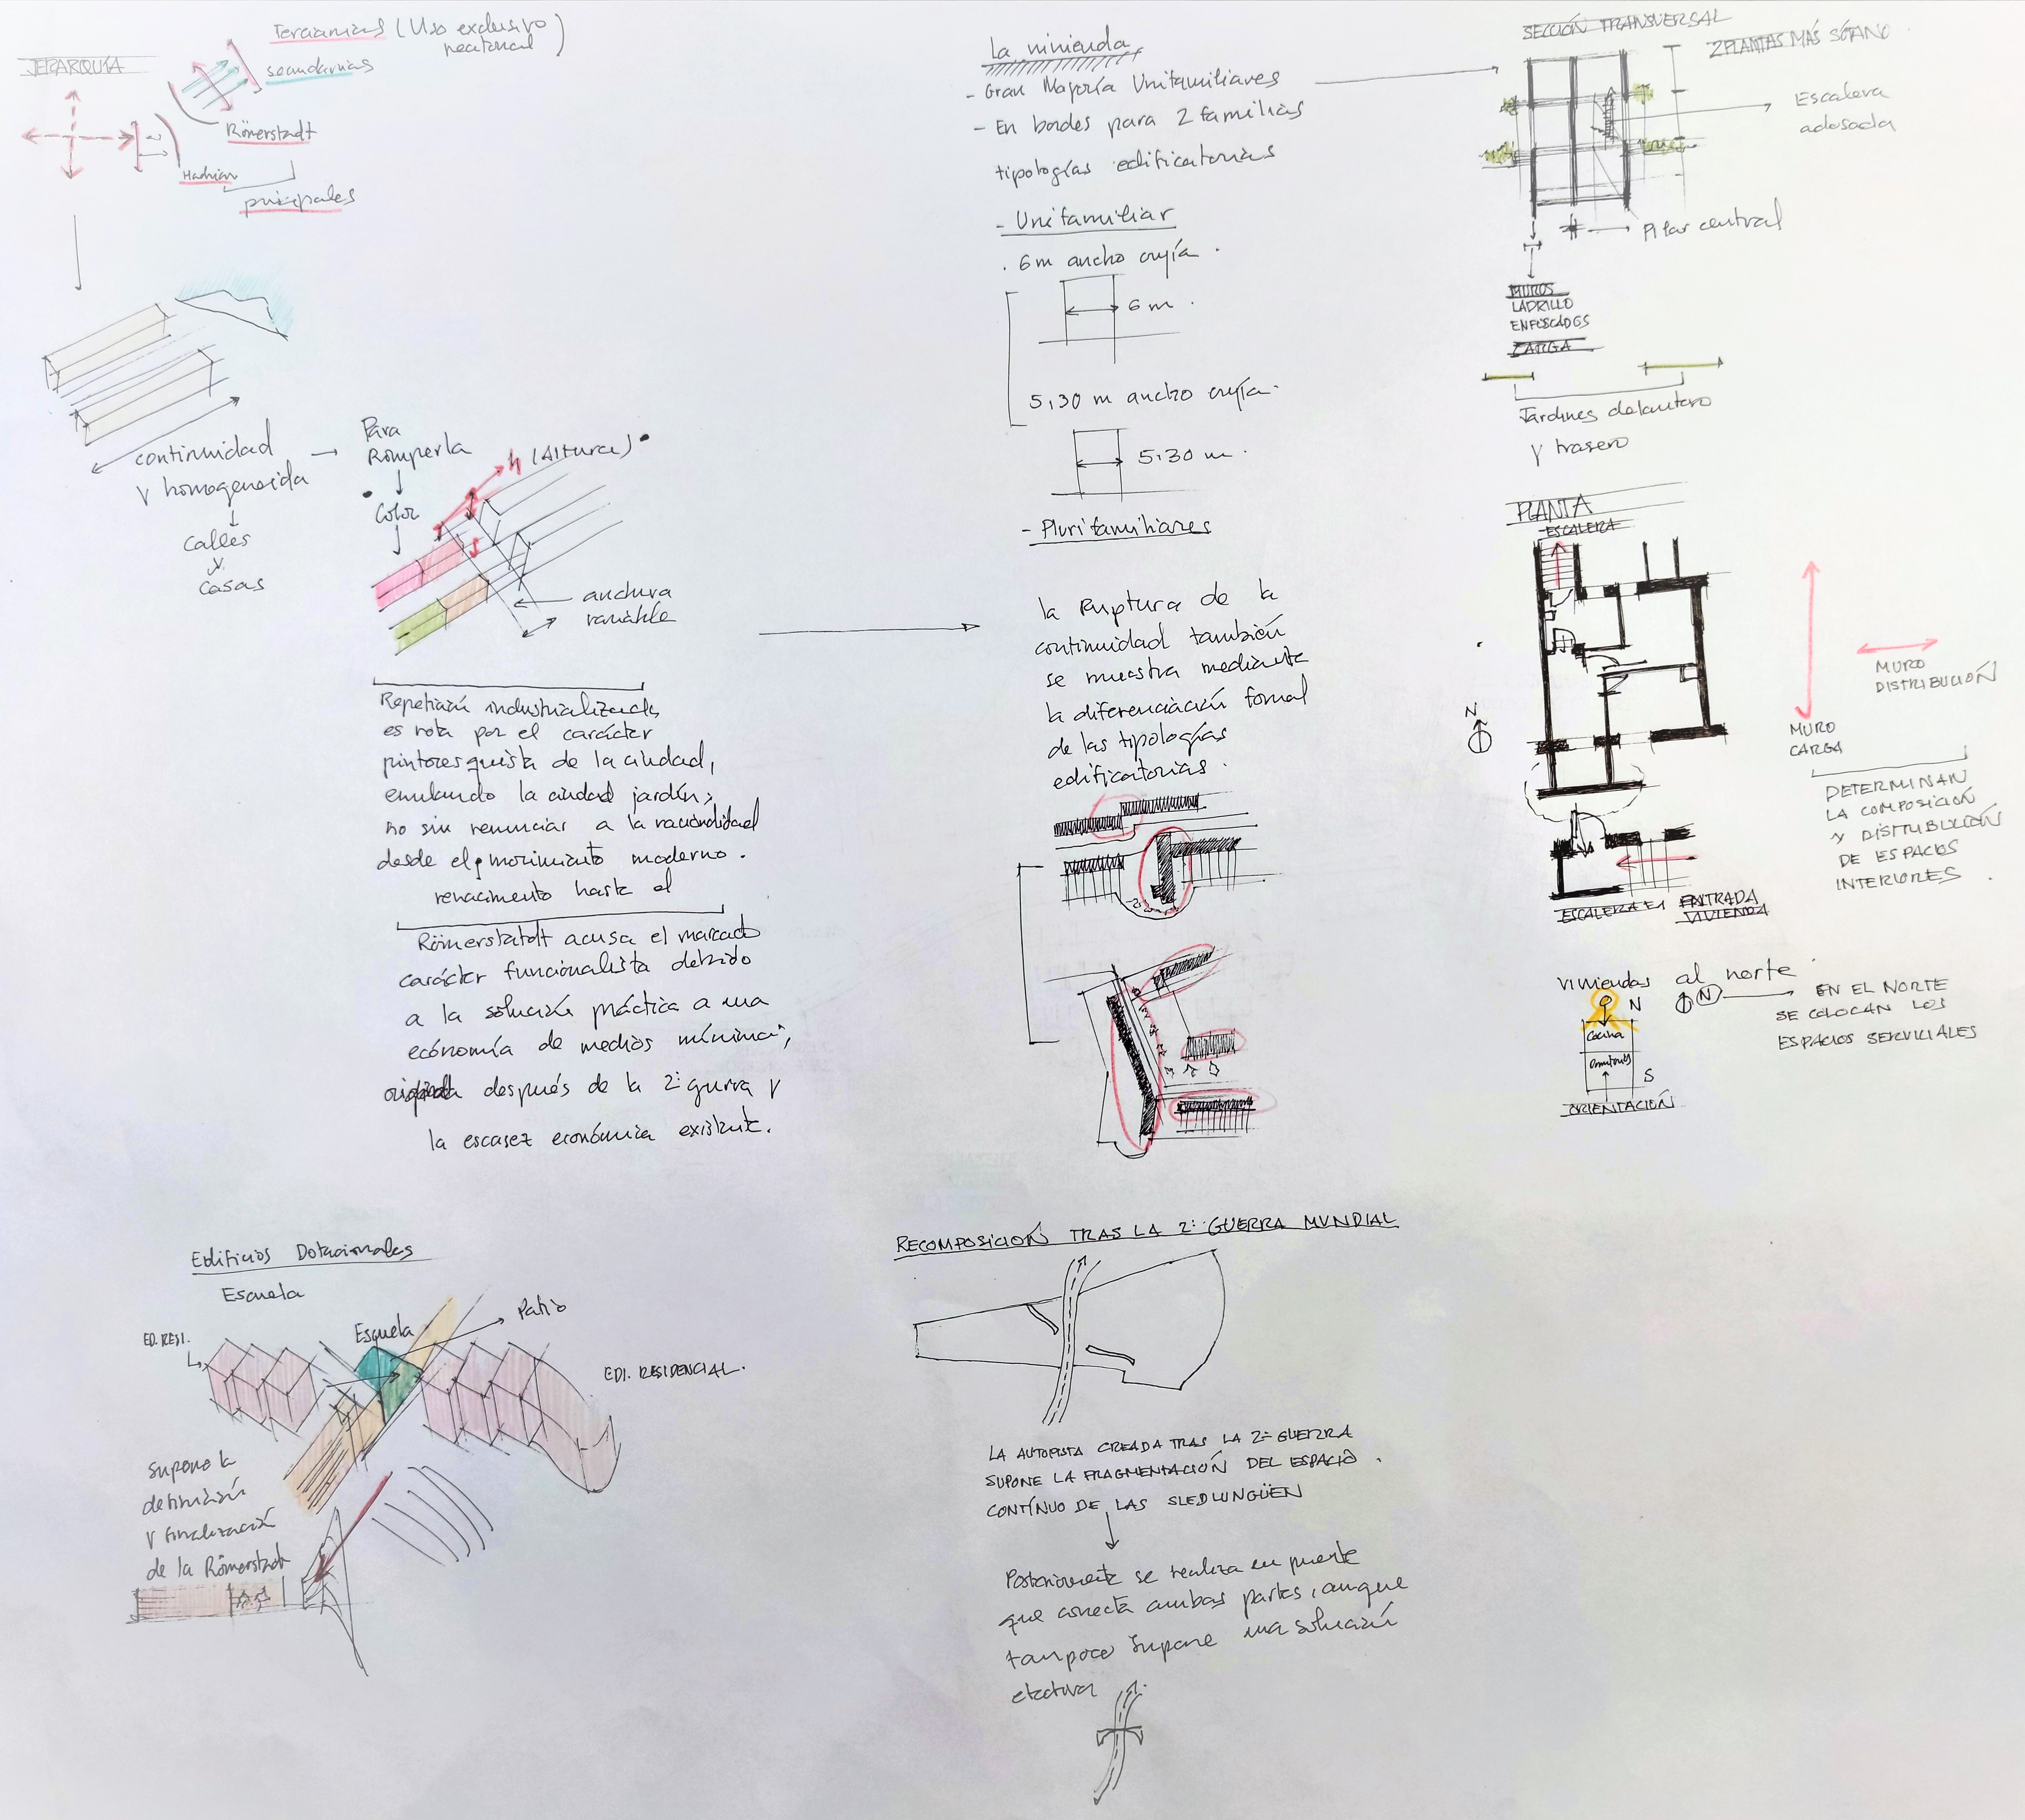 JERARQUÍA
Terciarias (Uso exclusivo
peatonal)
secundarias
Römerstadt
Hadrian
principales
continuidad
y homogeneida
calles
y
casas
Para
Romperla
Color
h (Altura)
anchura
variable
Repetición industrializada
es rota por el carácter
pintoresquista de la ciudad,
emulando la ciudad jardín;
no sin renunciar a la racionalidad
desde el movimiento moderno.
renacimiento hasta el
Römerstatdt acusa el marcado
carácter funcionalista debido
a la solución práctica a una
ecónomía de medios mínima,
después de la 2ª gurra y
la escasez económica existente.
Edificios Dotacionales
Escuela
ED. RESI.
Esquela
Patio
EDI. RESIDENCIAL.
Supone la
delimitación
y finalización
de la Römerstadt
La vivienda
- Gran Mayoría Unifamiliares
- En bordes para 2 familias
tipologías edificatorias
- Unifamiliar
. 6m ancho crujía .
6 m .
5,30 m ancho crujía.
5,30 m .
- Plurifamiliares
la Ruptura de la
continuidad también
se muestra mediante
la diferenciación formal
de las tipologías
edificatorias.
RECOMPOSICIÓN TRAS LA 2ª GUERRA MUNDIAL
LA AUTOPISTA CREADA TRAS LA 2ª GUERRA
SUPONE LA FRAGMENTACIÓN DEL ESPACIO
CONTÍNUO DE LAS SIEDLUNGÜEN
Posteriormente se realiza un puente
que conecta ambas partes, aunque
tampoco supone una solución
efectiva
SECCIÓN TRANSVERSAL
2 PLANTAS MÁS SÓTANO
Escalera
adosada
Pilar central
MUROS
LADRILLO
ENFOSCADOS
CARGA
Jardines delantero
y trasero
PLANTA
ESCALERA
N
MURO
DISTRIBUCIÓN
MURO
CARGA
DETERMINAN
LA COMPOSICIÓN
Y DISTRIBUCIÓN
DE ESPACIOS
INTERIORES.
ESCALERA EN ENTRADA
VIVIENDA
Viviendas al norte
N
N
EN EL NORTE
SE COLOCAN LOS
ESPACIOS SERVICIALES
Cocina
S
ORIENTACIÓN